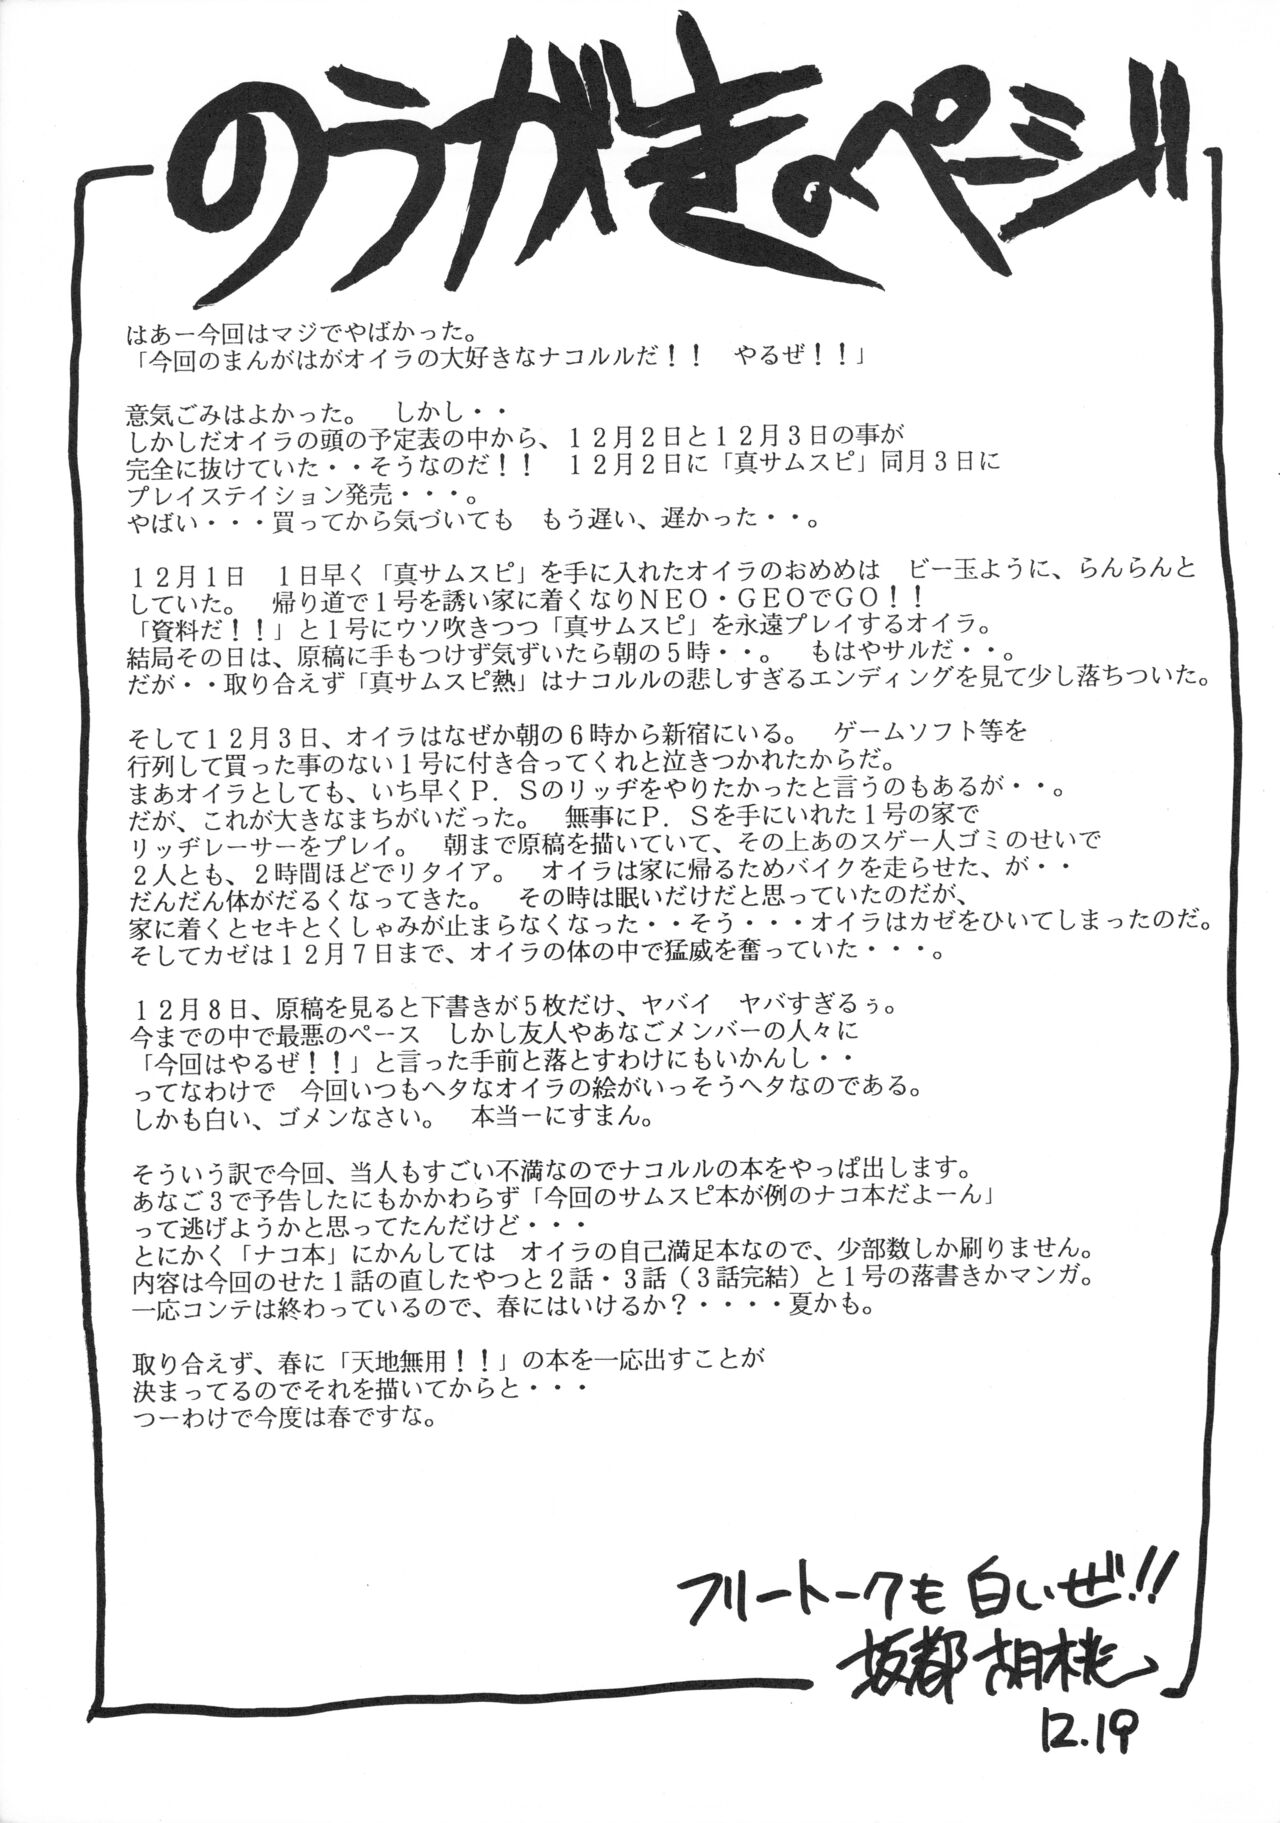 のうがきのページ
はあー今回はマジでやばかった。
「今回のまんがはがオイラの大好きなナコルルだ！！　やるぜ！！」
意気ごみはよかった。　しかし・・
しかしだオイラの頭の予定表の中から、１２月２日と１２月３日の事が
完全に抜けていた・・そうなのだ！！　１２月２日に「真サムスピ」同月３日に
プレイステイション発売・・・。
やばい・・・買ってから気づいても　もう遅い、遅かった・・。
１２月１日　１日早く「真サムスピ」を手に入れたオイラのおめめは　ビー玉ように、らんらんと
していた。　帰り道で１号を誘い家に着くなりＮＥＯ・ＧＥＯでＧＯ！！
「資料だ！！」と１号にウソ吹きつつ「真サムスピ」を永遠プレイするオイラ。
結局その日は、原稿に手もつけず気ずいたら朝の５時・・。　もはやサルだ・・。
だが・・取り合えず「真サムスピ熱」はナコルルの悲しすぎるエンディングを見て少し落ちついた。
そして１２月３日、オイラはなぜか朝の６時から新宿にいる。　ゲームソフト等を
行列して買った事のない１号に付き合ってくれと泣きつかれたからだ。
まあオイラとしても、いち早くＰ．Ｓのリッヂをやりたかったと言うのもあるが・・。
だが、これが大きなまちがいだった。　無事にＰ．Ｓを手にいれた１号の家で
リッヂレーサーをプレイ。　朝まで原稿を描いていて、その上あのスゲー人ゴミのせいで
２人とも、２時間ほどでリタイア。　オイラは家に帰るためバイクを走らせた、が・・
だんだん体がだるくなってきた。　その時は眠いだけだと思っていたのだが、
家に着くとセキとくしゃみが止まらなくなった・・そう・・・オイラはカゼをひいてしまったのだ。
そしてカゼは１２月７日まで、オイラの体の中で猛威を奮っていた・・・。
１２月８日、原稿を見ると下書きが５枚だけ、ヤバイ　ヤバすぎるぅ。
今までの中で最悪のペース　しかし友人やあなごメンバーの人々に
「今回はやるぜ！！」と言った手前と落とすわけにもいかんし・・
ってなわけで　今回いつもヘタなオイラの絵がいっそうヘタなのである。
しかも白い、ゴメンなさい。　本当ーにすまん。
そういう訳で今回、当人もすごい不満なのでナコルルの本をやっぱ出します。
あなご３で予告したにもかかわらず「今回のサムスピ本が例のナコ本だよーん」
って逃げようかと思ってたんだけど・・・
とにかく「ナコ本」にかんしては　オイラの自己満足本なので、少部数しか刷りません。
内容は今回のせた１話の直したやつと２話・３話（３話完結）と１号の落書きかマンガ。
一応コンテは終わっているので、春にはいけるか？・・・・夏かも。
取り合えず、春に「天地無用！！」の本を一応出すことが
決まってるのでそれを描いてからと・・・
つーわけで今度は春ですな。
フリートークも白いぜ!!
坂都胡桃
12.19